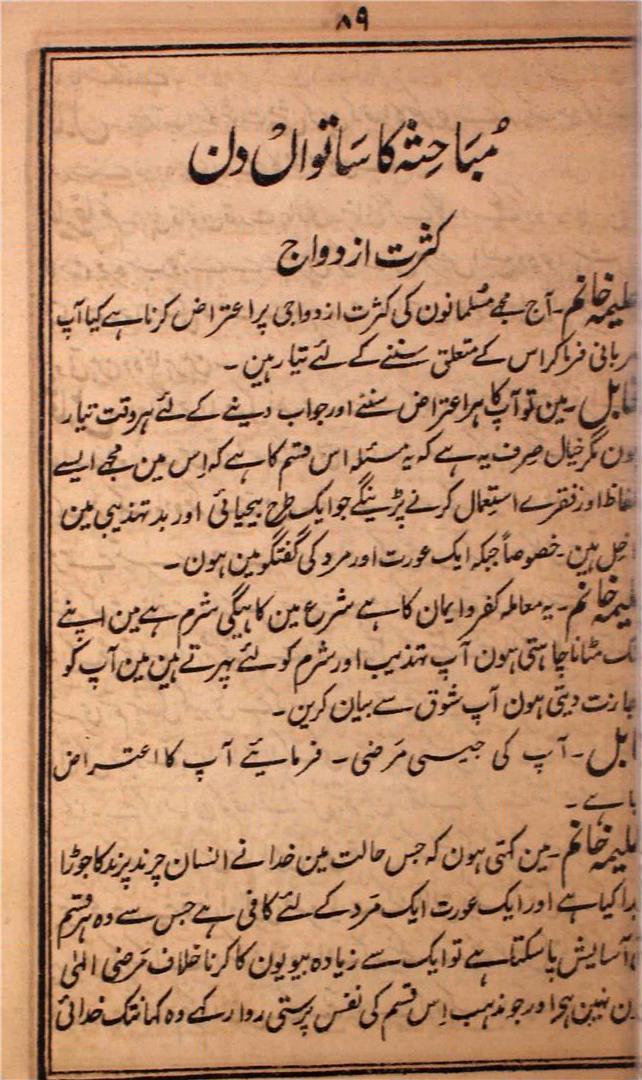 ۸۹
مُبَاحِثہ کا سَاتواں دن
کثرت ازدواج
خانم۔ آج مجھے مُسلمانون کی کثرت ازدواجی پر اعتراض کرنا ہے کیا آپ
فرما کر اس کے متعلق سننے کے لئے تیار ہین۔
۔ مین تو آپکا ہر اعتراض سننے اور جواب دینے کے لئے ہر وقت تیار
مگر خیال صرف یہ ہے کہ یہ مسئلہ اس قسم کا ہے کہ اِس مین مجھے ایسے
اور فقرے استعمال کرنے پڑینگے جو ایک طرح بیحیائی اور بد تہذیبی مین
ہین۔ خصوصاً جبکہ ایک عورت اور مرد کی گفتگو مین ہون۔
خانم۔ یہ معاملہ کفر و ایمان کا ہے شرع مین کاہیکی شرم ہے مین اپنے
مٹانا چاہتی ہون آپ تہذیب اور شرم کو لئے پہرتے ہین مین آپ کو
دیتی ہون آپ شوق سے بیان کرین۔
۔ آپ کی جیسی مَرضی۔ فرمایئے آپ کا اعتراض
ہے۔
خانم۔ مین کہتی ہون کہ جس حالت مین خدا نے انسان چرند پرند کا جوڑا
کیا ہے اور ایک عورت ایک مَرد کے لئے کافی ہے جس سے وہ ہر قسم
آسایش پا سکتا ہے تو ایک سے زیادہ بیویون کا کرنا خلاف مَرضی الٰہی
نہین ہوا اور جو مذہب اِس قسم کی نفس پرستی روا رکہے وہ کہانتک خدائی